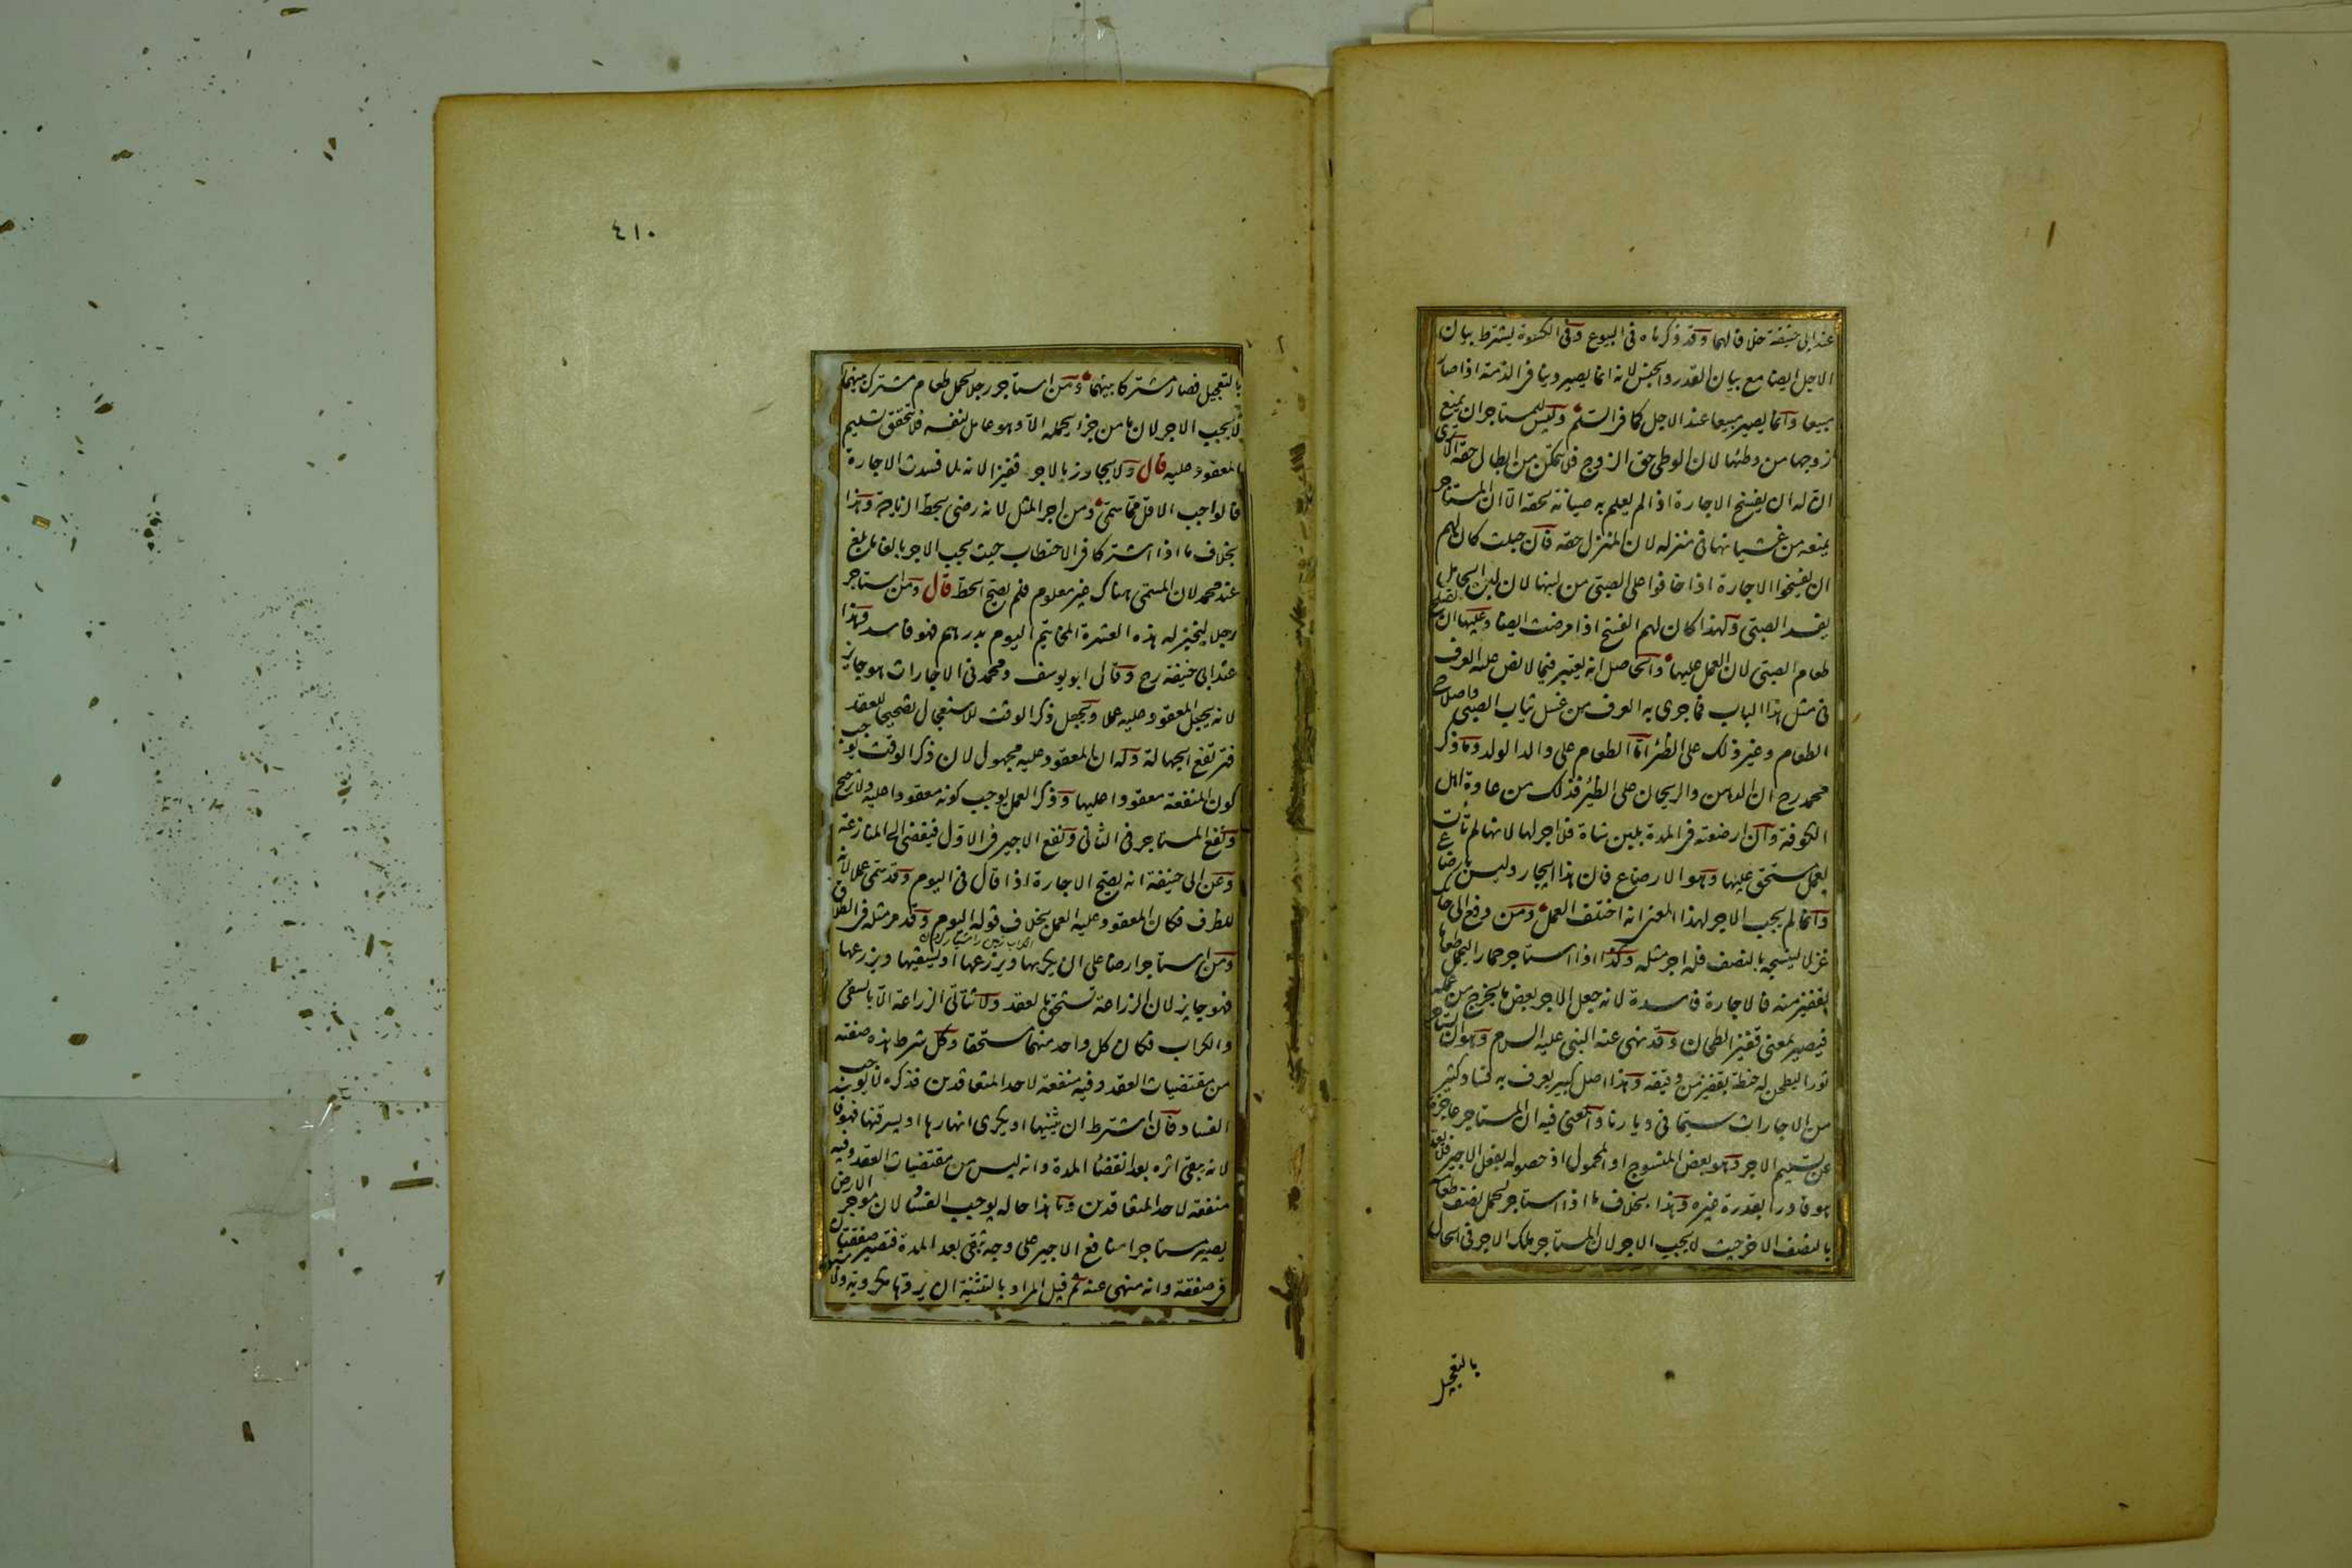 عند ابى حنيفة خلافا لهما وقد ذكرناه فى البيوع وفى الكسوة يشترط بيان
الاجل ايضا مع بيان القدر والجنس لانه انما يصير دينا فى الذمة اذا صار
مبيعا وانما يصير مبيعا عند الاجل كما فى السلم وليس للمستاجر ان يمنع
زوجها من وطئها لان الوطى حق الزوج فلا يتمكن من ابطال حقه الا ترى
ان له ان يفسخ الاجارة اذا لم يعلم به صيانة لحقه الا ان المستاجر
يمنعه من غشيانها فى منزله لان المنزل حقه فان حبلت كان لهم
ان يفسخوا الاجارة اذا خافوا على الصبى من لبنها لان لبن الحامل
يفسد الصبى ولهذا كان لهم الفسخ اذا مرضت ايضا وعليها ان تصلح
طعام الصبى لان العمل عليها والحاصل انه يعتبر فيما لا نص عليه العرف
فى مثل هذا الباب فما جرى به العرف من غسل ثياب الصبى واصلاح
الطعام وغير ذلك على الظئر اما الطعام على والد الولد وما ذكر
محمد رح ان الدهن والريحان على الظئر فذلك من عادة اهل
الكوفة وان ارضعته فى المدة بلبن شاة فلا اجر لها لانها لم تأت
بعمل مستحق عليها وهو الارضاع فان هذا ايجار وليس بارضاع
وانما لم يجب الاجر لهذا المعنى انه اختلف العمل ومن دفع الى حائك
غزلا لينسجه بالنصف فله اجر مثله وكذا اذا استاجر حمارا ليحمل طعاما
بقفيز منه فالاجارة فاسدة لانه جعل الاجر بعض ما يخرج من عمله
فيصير بمعنى قفيز الطحان وقد نهى عنه النبى عليه السلام وهو ان يستاجر
ثورا ليطحن له حنطة بقفيز من دقيقه وهذا اصل كبير يعرف به فساد كثير
من الاجارات سيما فى ديارنا والمعنى فيه ان المستاجر عاجز
عن تسليم الاجر وهو بعض المنسوج او المحمول اذ حصوله بفعل الاجير فلا يعد
هو قادرا بقدرة غيره وهذا بخلاف ما اذا استاجر ليحمل نصف طعامه
بالنصف الاخر حيث لا يجب الاجر لان المستاجر ملك الاجر فى الحال
بالتعجيل
٤١٠
بالتعجيل فصار مشتركا بينهما ومن استاجر رجلا لحمل طعام مشترك بينهما
لا يجب الاجر لان ما من جزء يحمله الا وهو عامل لنفسه فلا يتحقق تسليم
المعقود عليه قال ولا يجاوز بالاجر قفيزا لانه لما فسدت الاجارة
فالواجب الاقل مما سمى ومن اجر المثل لانه رضى بحط الزيادة وهذا
بخلاف ما اذا اشتركا فى الاحتطاب حيث يجب الاجر بالغا ما بلغ
عند محمد لان المسمى هناك غير معلوم فلم يصح الحط قال ومن استاجر
رجلا ليخبز له هذه العشرة المخاتيم اليوم بدرهم فهو فاسد وهذا
عند ابى حنيفة رح وقال ابو يوسف ومحمد فى الاجارات هو جايز
لانه يجعل المعقود عليه عملا ويجعل ذكر الوقت للاستعجال تصحيحا للعقد
فترتفع الجهالة وله ان المعقود عليه مجهول لان ذكر الوقت يوجب
كون المنفعة معقودا عليها وذكر العمل يوجب كونه معقودا عليه ولا ترجيح
ونفع المستاجر فى الثانى ونفع الاجير فى الاول فيفضى الى المنازعة
وعن ابى حنيفة انه يصح الاجارة اذا قال فى اليوم وقد سمى عملا لانه
للظرف فكان المعقود عليه العمل بخلاف قوله اليوم وقد مر مثله فى الطلاق
ومن استاجر ارضا على ان يكربها ويزرعها او يسقيها ويزرعها
فهو جايز لان الزراعة تستحق بالعقد ولا تتاتى الزراعة الا بالسقى
والكراب فكان كل واحد منهما مستحقا وكل شرط هذه صفته
من مقتضيات العقد وفيه منفعة لاحد المتعاقدين فذكره لا يوجب
الفساد فان اشترط ان يثنيها او يكرى انهارها او يسرقنها فهو فا
لانه يبقى اثره بعد انقضا المدة وانه ليس من مقتضيات العقد وفيه
منفعة لاحد المتعاقدين وما هذا حاله يوجب الفساد لان موجر الارض
يصير مستاجرا منافع الاجير على وجه تبقى بعد المدة فتصير صفقتان
فى صفقة وانه منهى عنه ثم قيل المراد بالتثنية ان يردها مكروبة ولا